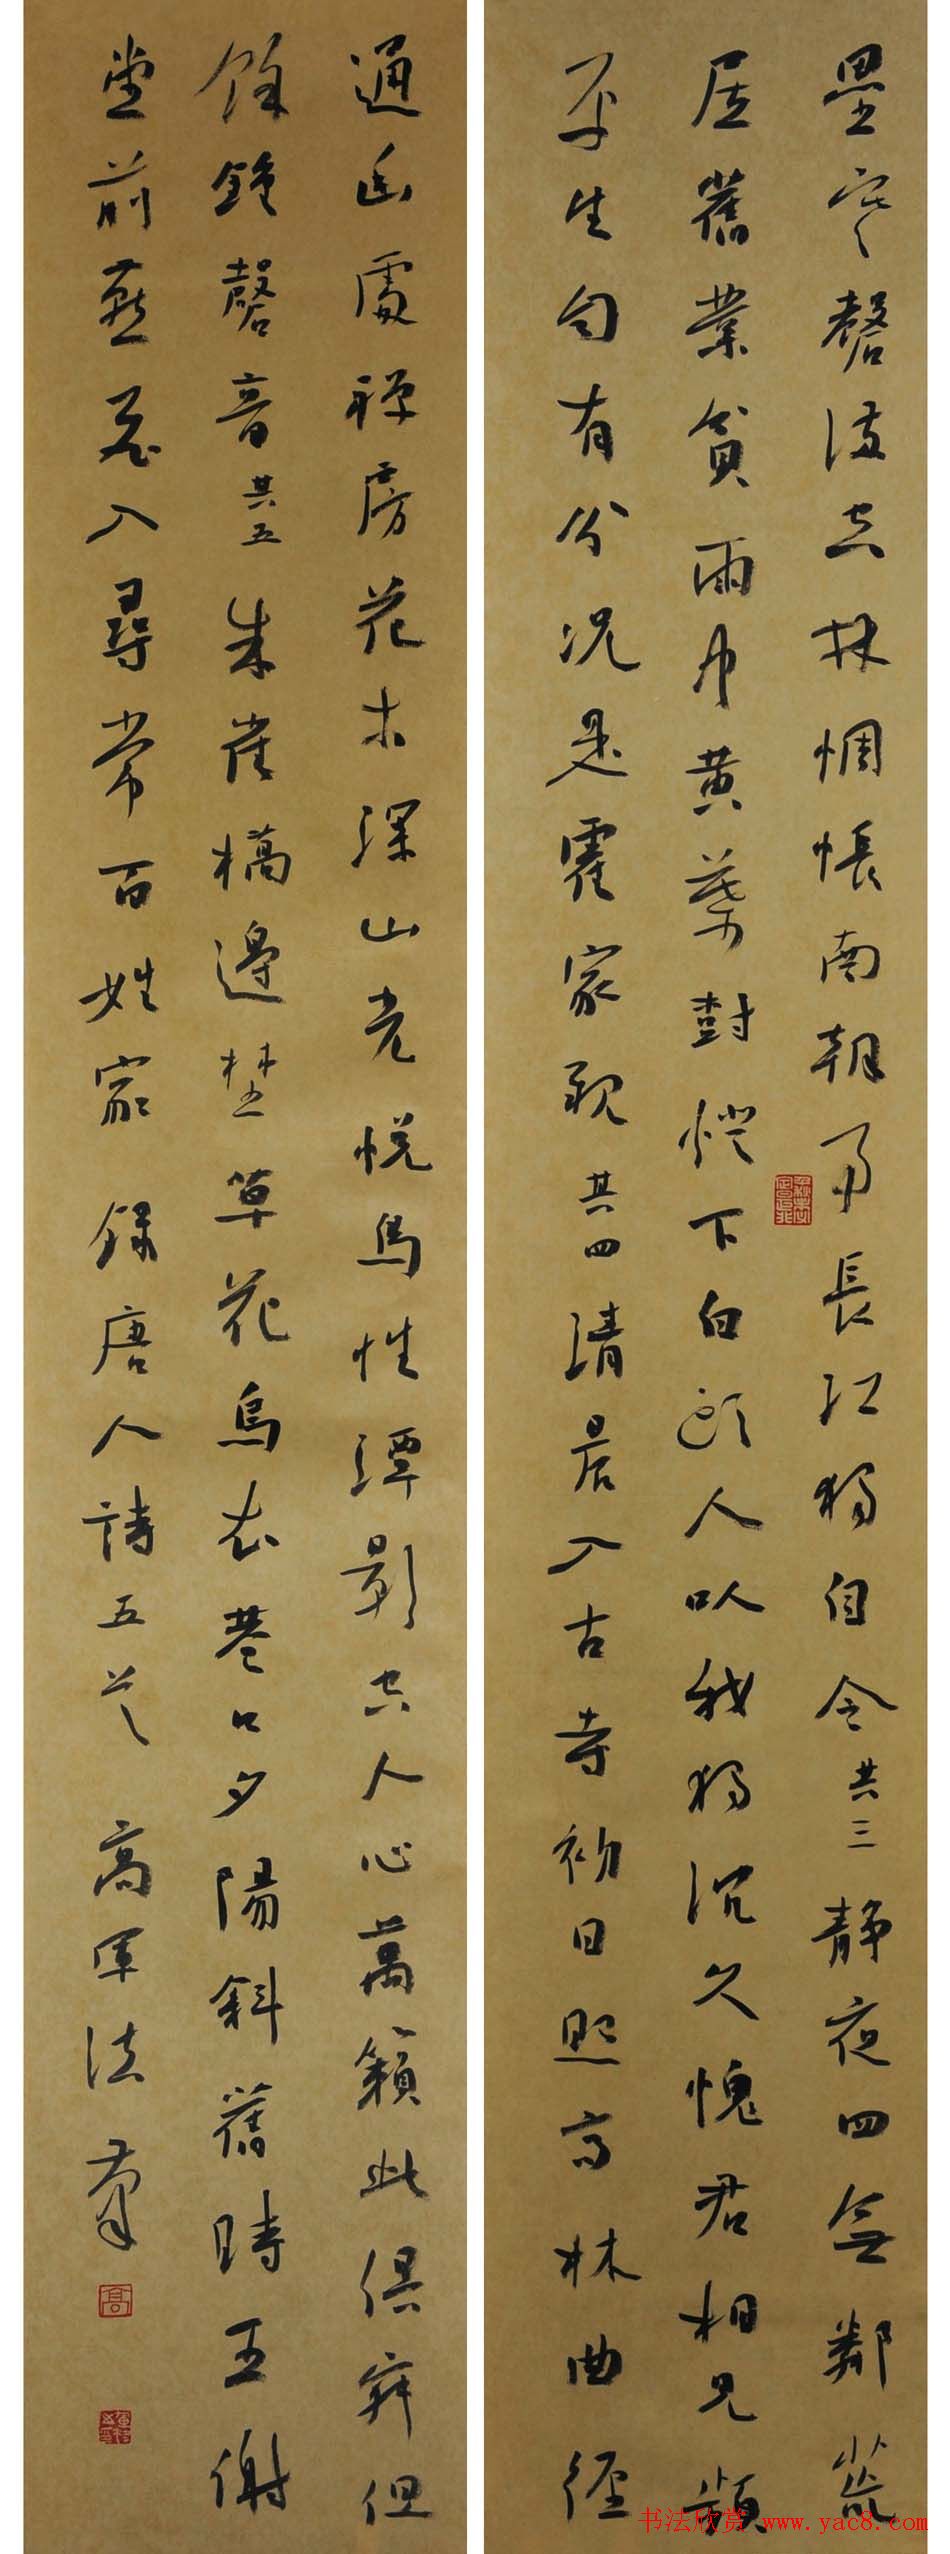 壘寒磬滿空林惆悵南朝事長江獨自今共三靜夜四無鄰荒
居舊業貧雨中黃葉樹燈下白頭人以我獨沉久愧君相見頻
平生自有分況是霍家親共四清晨入古寺初日照高林曲徑
通幽處禪房花木深山光悅鳥性潭影空人心萬籟此俱寂但
餘鐘磬音共五朱雀橋邊埜草花烏衣巷口夕陽斜舊時王謝
堂前燕飛入尋常百姓家錄唐人詩五首高軍法書
高
书法欣赏 www.yac8.com